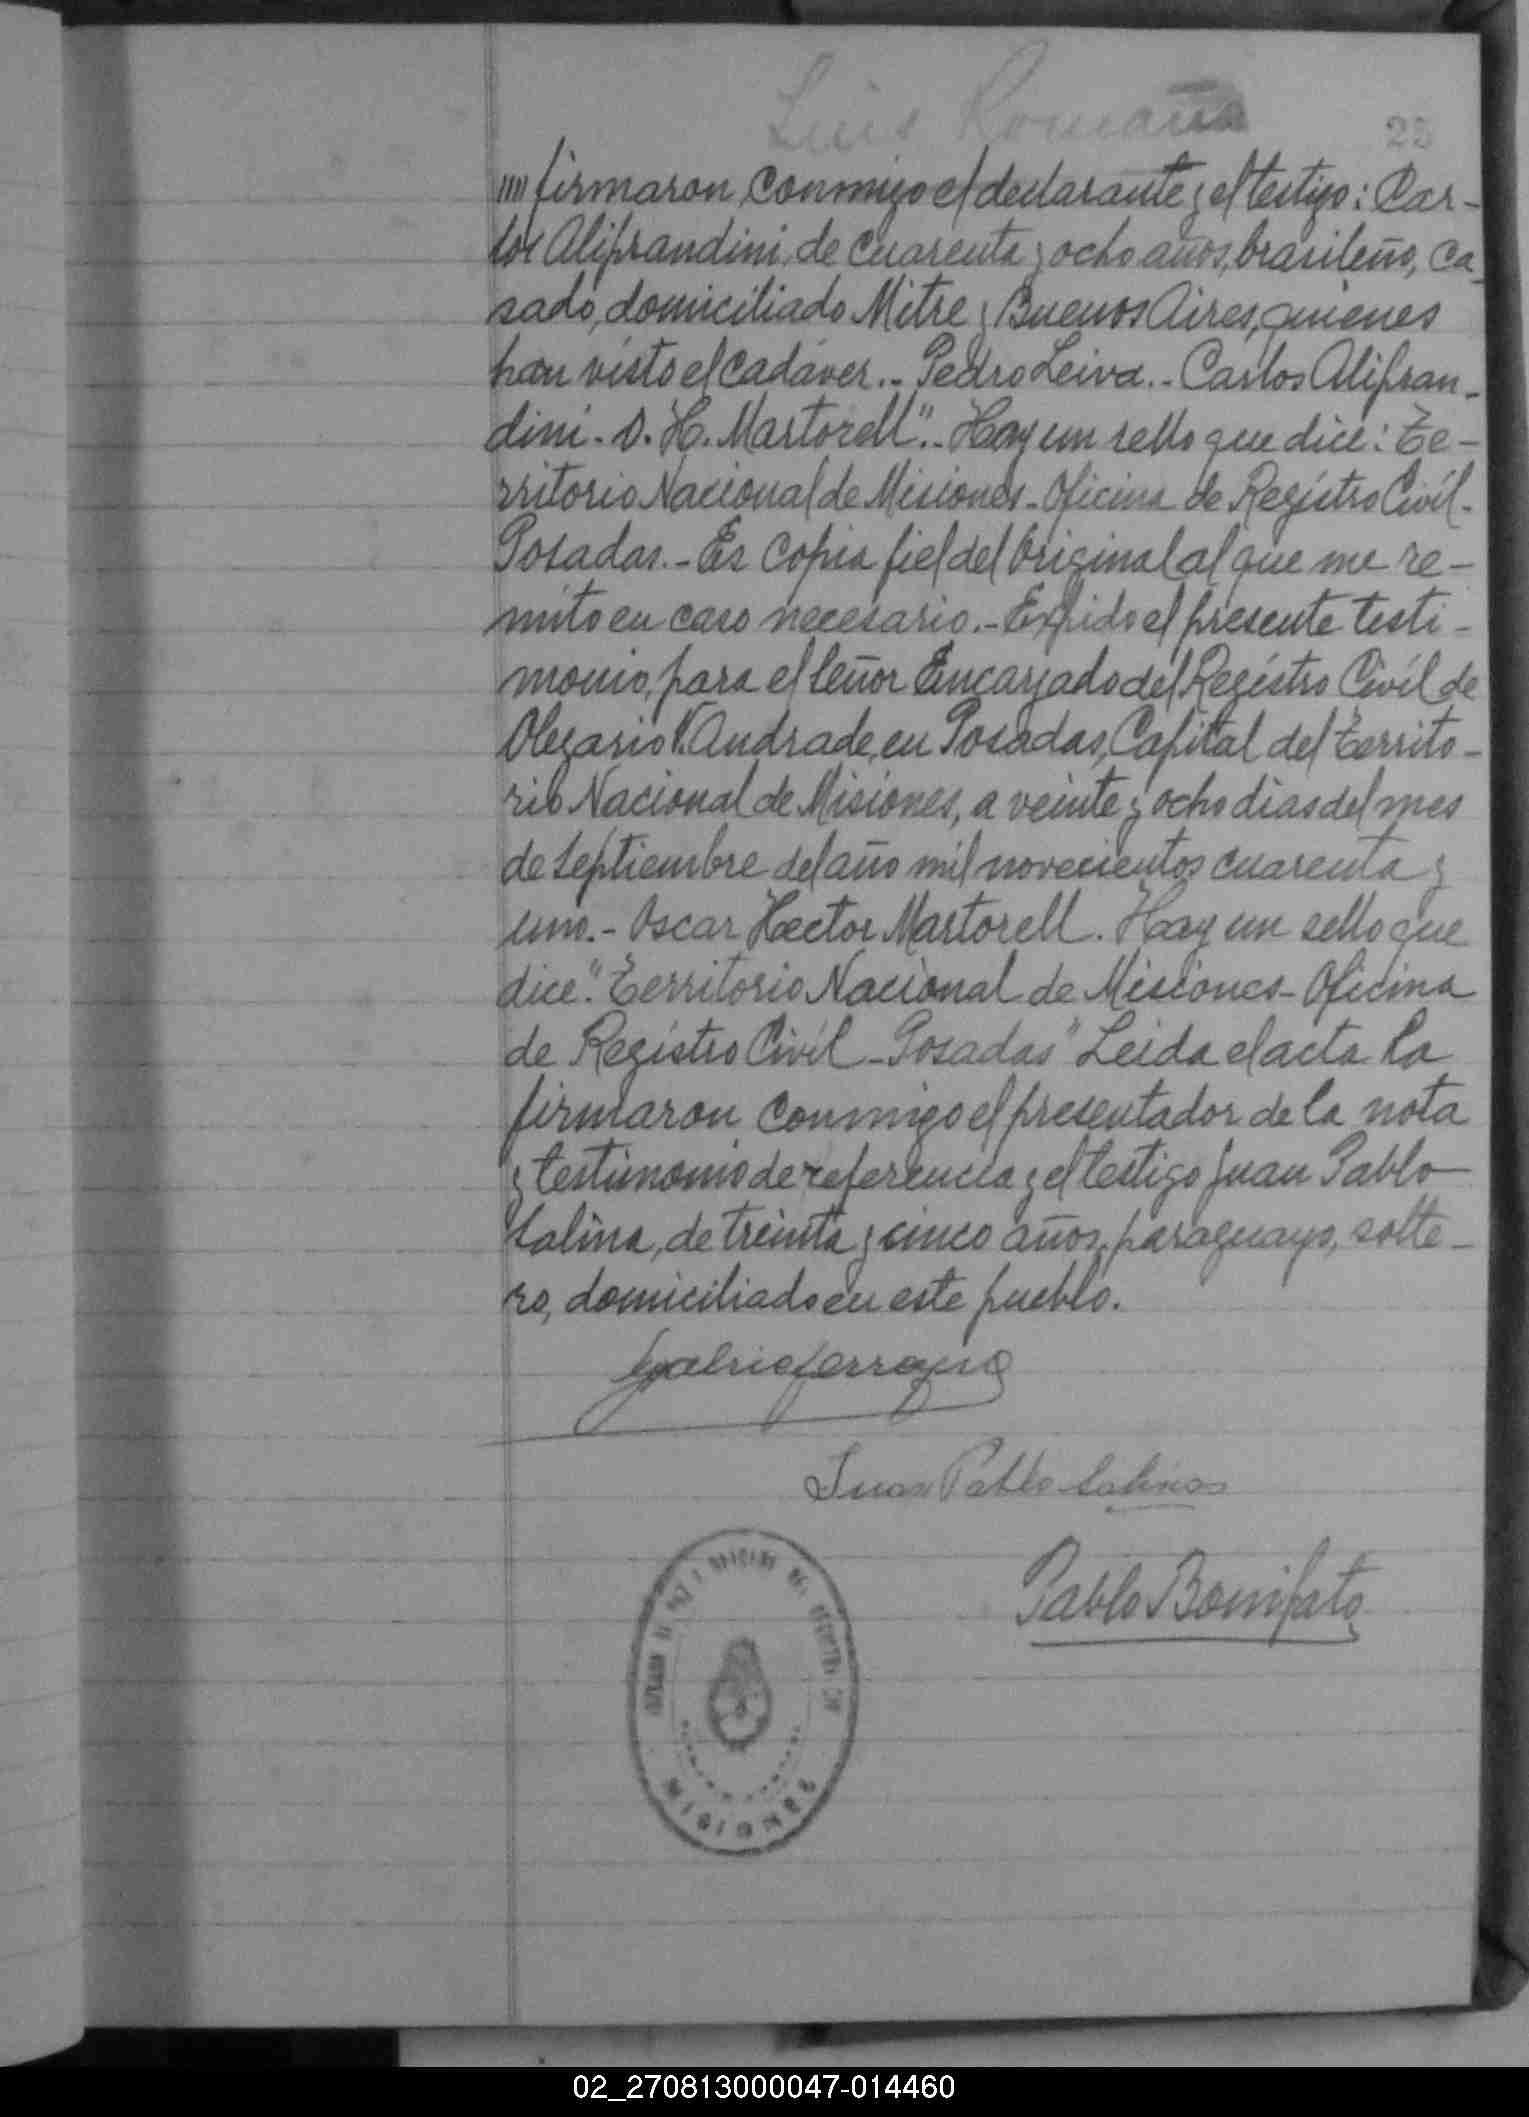 Luis Romaña
"" firmaron conmigo el declarante y el testigo: Car-
los Aliprandini, de cuarenta y ocho años, brasileño, ca-
sado, domiciliado Mitre y Buenos Aires, quienes
han visto el cadáver.- Pedro Leiva.- Carlos Alipran-
dini- O. H. Martorell".- Hay un sello que dice: Te-
rritorio Nacional de Misiones- Oficina de Registro Civil-
Posadas.- Es copia fiel del Original al que me re-
mito en caso necesario.- Expido el presente testi-
monio, para el señor Encargado del Registro Civil de
Olegario V. Andrade, en Posadas, Capital del Territo-
rio Nacional de Misiones, a veinte y ocho dias del mes
de septiembre del año mil novecientos cuarenta y
uno.- Oscar Hector Martorell. Hay un sello que
dice: "Territorio Nacional de Misiones- Oficina
de Registro Civil- Posadas" Leida el acta la
firmaron conmigo el presentador de la nota
y testimonio de referencia y el testigo Juan Pablo
Salina, de treinta y cinco años, paraguayo, solte-
ro, domiciliado en este pueblo.
Juan Pablo Salinas
Pablo Bonifato
MISIONES
02_270813000047-014460